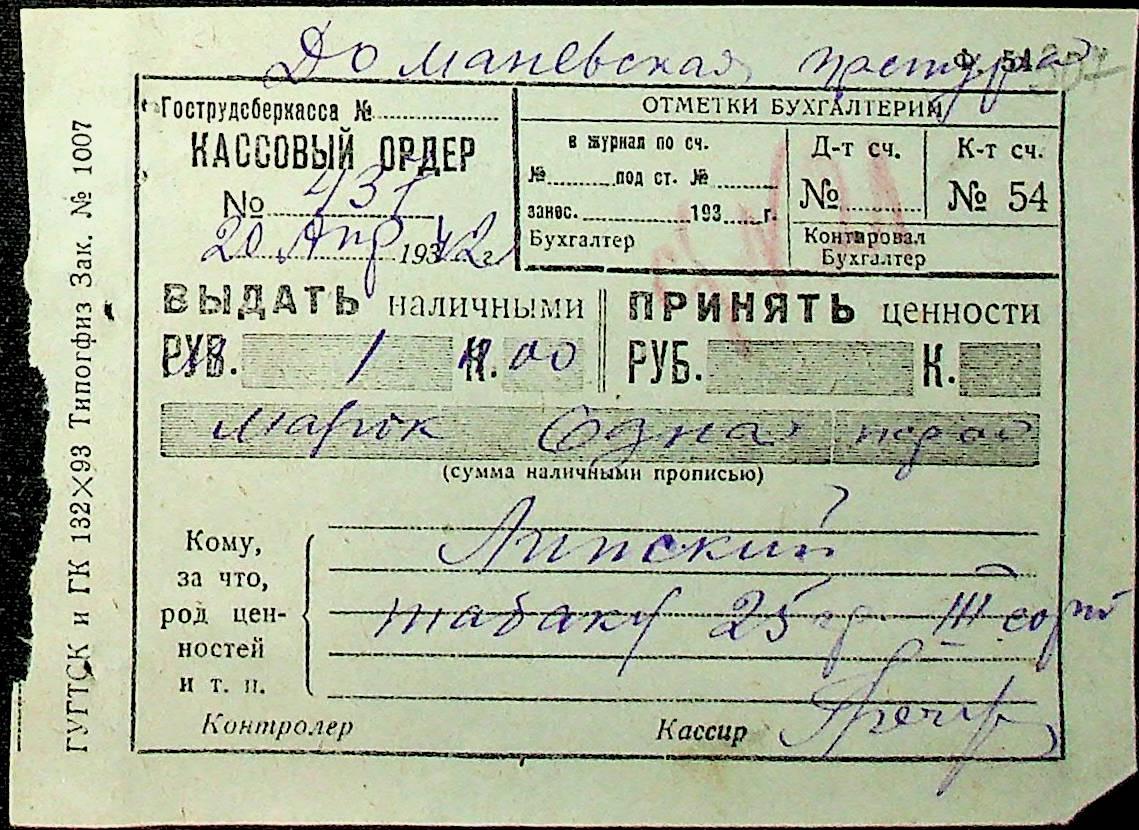 Доманевская претура
Ф. 51
Гострудсберкасса №
КАССОВЫЙ ОРДЕР
№ 437
20 Апр 1942 г.
ОТМЕТКИ БУХГАЛТЕРИИ
в журнал по сч.
№ под ст. №
занос. 193 г.
Бухгалтер
Д-т сч.
№
К-т сч.
№ 54
Контировал
Бухгалтер
ВЫДАТЬ наличными
РУБ. 1 К. 00
ПРИНЯТЬ ценности
РУБ. К.
марок Одна
(сумма наличными прописью)
Кому,
за что,
род цен-
ностей
и т. п.
Липский
табаку 25 гр. III сорт
Контролер
Кассир
ГУГТСК и ГК 132×93 Типогфиз Зак. № 1007